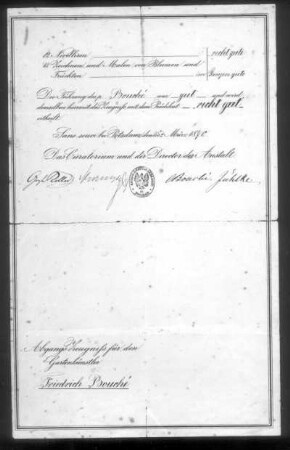 14. Nivelliren recht gut
15. Zeichnen und Malen von Blumen und
Früchten im Ganzen gut
Die Führung des p. Bouché war gut und wird
demselben hiermit das Zeugniß mit dem Prädikat recht gut
ertheilt.
Sans souci bei Potsdam, den März 18
Das Curatorium und der Director der Anstalt
Jühlke
Abgangs Zeugniß für den
Gartenkünstler
Friedrich Bouché